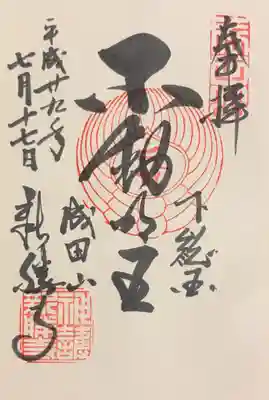 奉拝
下総国
不動明王
成田山
新勝寺
平成廿九年
七月十七日